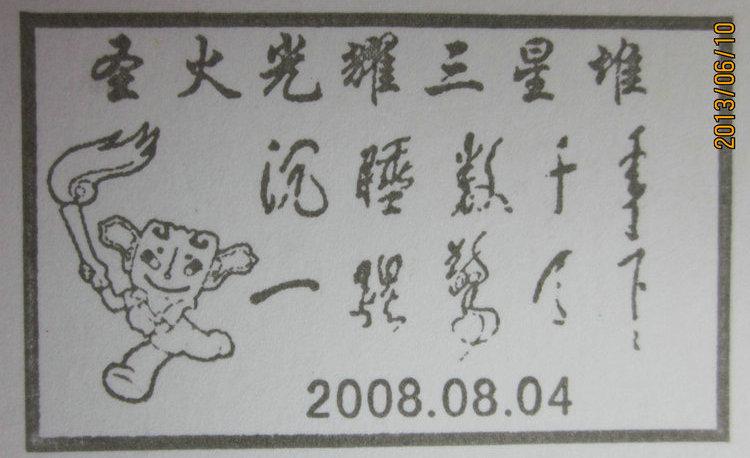 圣火光耀三星堆
沉睡数千年
一醒惊天下
2008.08.04
2013/06/10